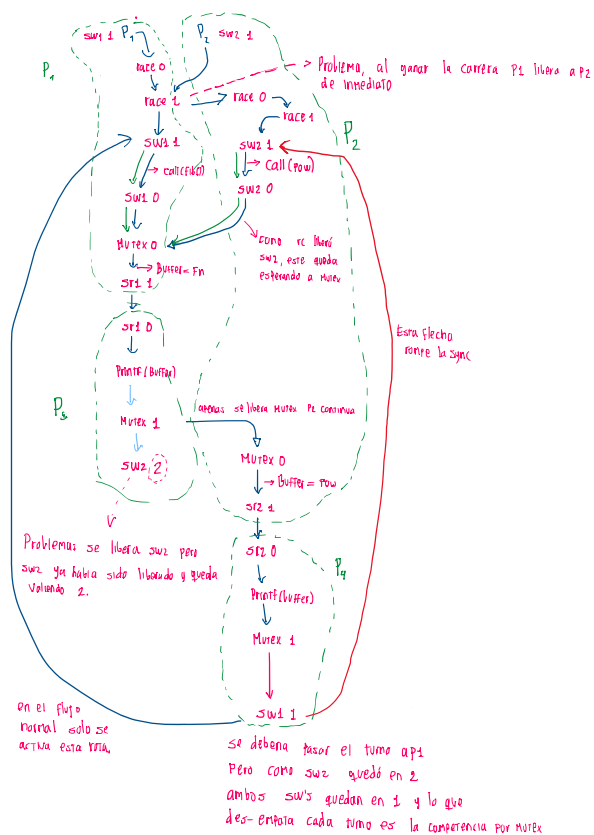 SW1 1 P1
P2 SW2 1
P1
race 0
Problema, al ganar la carrera P1 libera a P2
de inmediato
race 1
race 0
race 1
P2
SW1 1
SW2 1
call(Fibo)
Call(Pow)
SW1 0
SW2 0
Mutex 0
Como rc liberó
SW2, este queda
esperando a Mutex
Buffer = Fn
sr1 1
sr1 0
Esta flecha
rompe la sync
Printf(Buffer)
P3
Mutex 1
apenas se libera Mutex P2 continua
SW2 2
Mutex 0
Buffer = Pow
sr2 1
Problema: se libera SW2 pero
SW2 ya había sido liberado y queda
valiendo 2.
sr2 0
P4
Printf(buffer)
Mutex 1
SW1 1
en el flujo
normal solo se
activa esta ruta.
se debería pasar el turno a P1
Pero como SW2 quedó en 2
ambos SW's quedan en 1 y lo que
des-empata cada turno es la competencia por Mutex